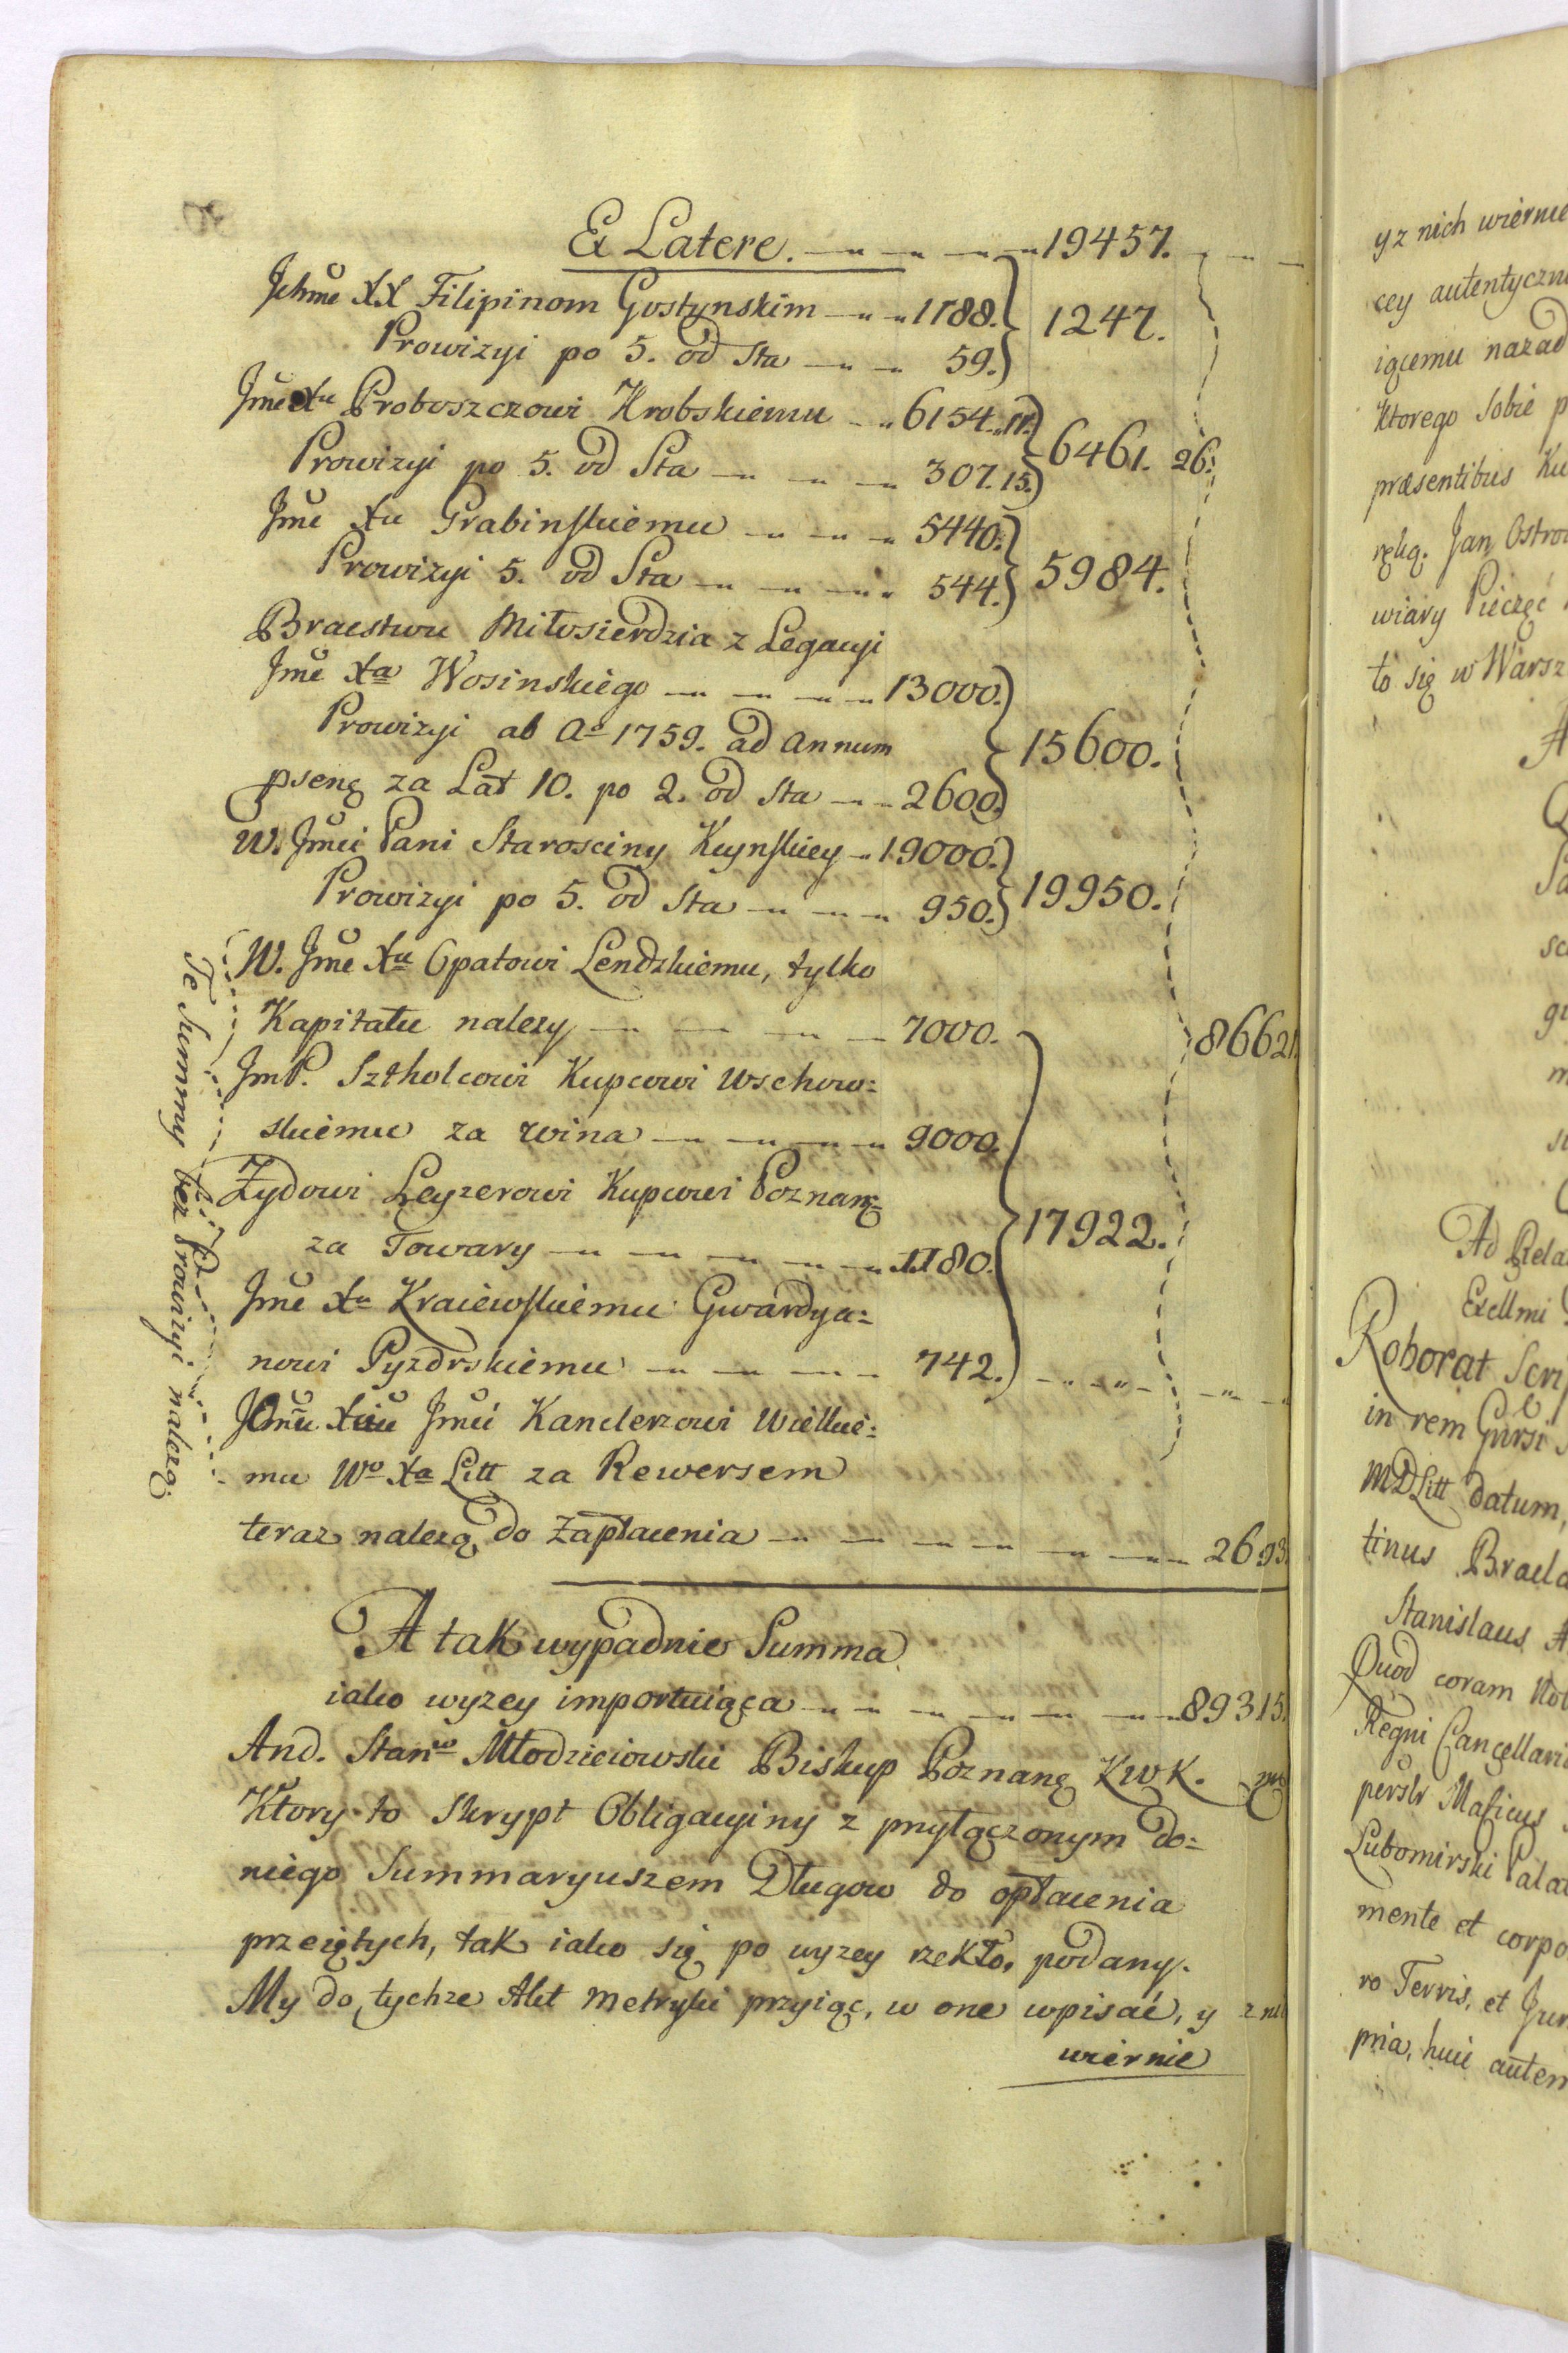 Ex Latere. 19457.
Ichme XX Filipinom Gostynskim 1188. 1247.
Prowizyi po 5. od Sta 59.
Jme Xu Proboszczowi Krobskiemu 6154. 11. 6461. 26.
Prowizyi po 5. od Sta 307. 15.
Jme Xu Grabinskiemu 5440. 5984.
Prowizyi 5. od Sta 544.
Bractwu Miłosierdzia z Legacyi
Jme Xa Wosinskiego 13000.
Prowizyi ab Ao 1759. ad annum 15600.
pseng za Lat 10. po 2. od Sta 2600.
W. Jmci Pani Starosciny Kcynskiey 19000. 19950.
Prowizyi po 5. od Sta 950.
W. Jme Xu Opatowi Lendzkiemu, tylko
Kapitału nalezy 7000. 86621.
JmP. Sztholcowi Kupcowi Wschow=
skiemu za wina 9000.
Zydowi Leyzerowi Kupcowi Poznang
za Towary 1180. 17922.
Jme Xu Kraiewskiemu Gwardya=
nowi Pyzdrskiemu 742.
JOmu Xciu Jmci Kanclerzowi Wielkie=
mu Wo Xa Litt za Rewersem
teraz nalezą do Zapłacenia 2693.
Te Summy bez Prowizyi nalezą.
A tak wypadnie Summa
iako wyzey importuiąca 89315.
And. Stanw Młodzieiowski Biskup Poznang KWK. mp
Ktory to Skrypt Obligacyiny z przyłączonym do=
niego Summaryuszem Długow do opłacenia
przeiętych, tak iako się po wyzey rzekło, podany.
My do tychze Akt Metryki przyiąc, w one wpisać, y z nich
wiernie
y z nich wiernie
cey autentyczn
iącemu nazad
Ktorego Sobie p
præsentibus Ku
ręką. Jan Ostro
wiary Pieczęć
to się w Warsz
Ad Rela
Excllmi
Roborat Scri
in rem
MDLitt datum,
tinus Bracla
Stanislaus A
Quod coram Nob
Regni Cancellari
Lubomirski Pala
mente et corpo
ro Terris, et Jur
pria, huic autem